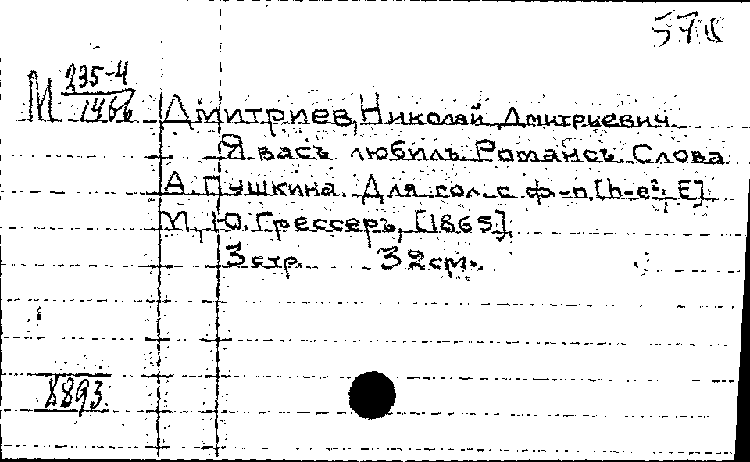 578
М 235-4
1466
Дмитриев, Николай Дмитриевич.
Я васъ любилъ. Романсъ. Слова
А. Пушкина. Для гол. с ф-п. [h-e²: E]
М., Ю. Грессеръ, [1865].
3 стр. 32 см.
8893.